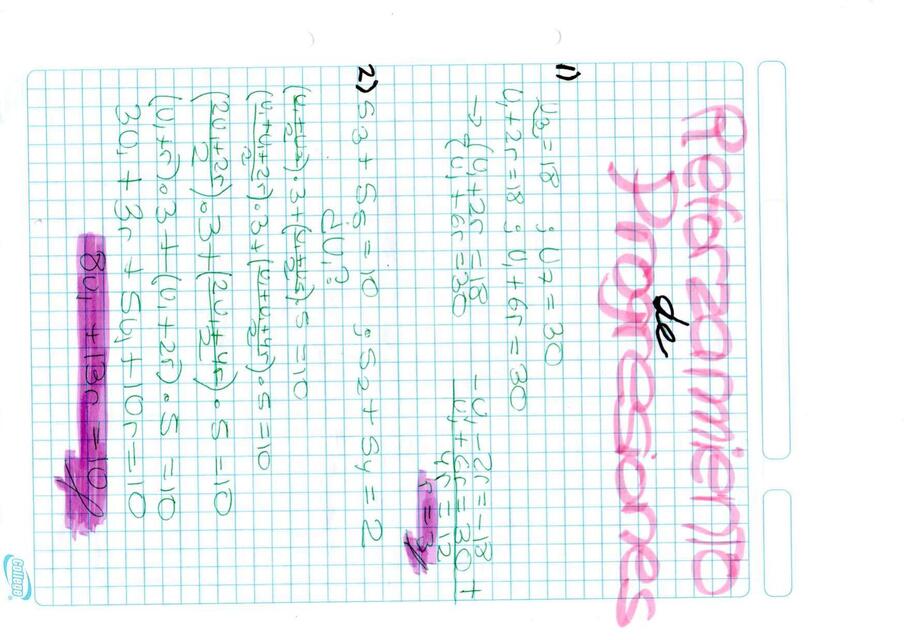 Reforzamiento
de
progresiones
1) U3 = 18 ; U7 = 30
U1 + 2r = 18 ; U1 + 6r = 30
→ (U1 + 2r = 18
(U1 + 6r = 30
-U1 - 2r = -18
U1 + 6r = 30 +
4r = 12
r = 3
2) S3 + S5 = 10 ; S2 + S4 = 2
¿U1?
(U1+U3/2).3 + (U1+U5/2)5 = 10
(U1+U1+2r/2).3 + (U1+U1+4r/2).5 = 10
(2U1+2r/2).3 + (2U1+4r/2).5 = 10
(U1+r).3 + (U1+2r).5 = 10
3U1 + 3r + 5U1 + 10r = 10
8U1 + 13r = 10
college